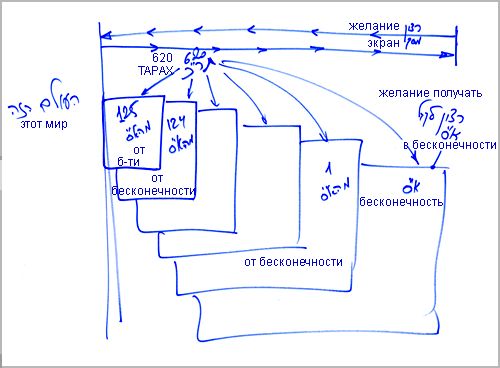 желание רצון
экран מסך
620 תר"ך
ТАРАХ
желание получать
רצון לקבל
א"ס
в бесконечности
העולם הזה
этот мир
125
מא"ס
от
б-ти
124
מא"ס
от
бесконечности
1
מא"ס
от бесконечности
א"ס
бесконечность